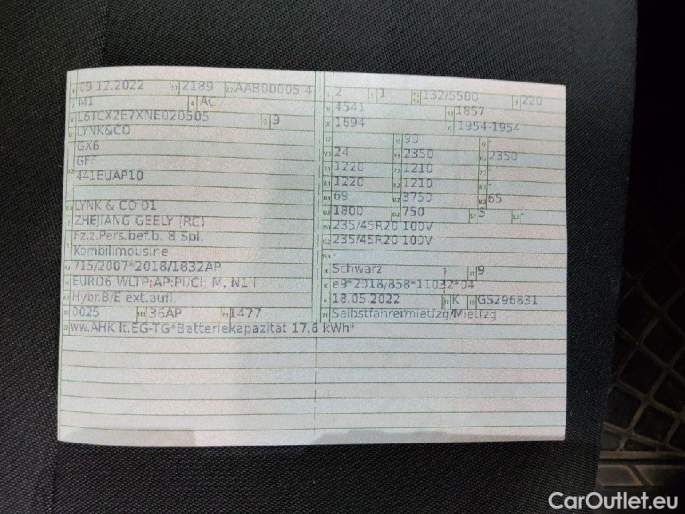 09.12.2022 2189 AAB00005 4
M1 AC
L6TCX2E7XNE020505 9
LYNK&CO
GX6
GFF
441EUAP10
LYNK & CO 01
ZHEJIANG GEELY (RC)
Fz.z.Pers.bef.b. 8 Spl.
Kombilimousine
715/2007*2018/1832AP
EURO6 WLTP;AP;PI/CI; M, N1 I
Hybr.B/E ext.aufl.
0025 36AP 1477
ww.AHK lt.EG-TG*Batteriekapazität 17,6 kWh*
2 1 132/5500 220
4541 1857
1694 1954-1954
90
24 2350 2350
1220 1210 -
1220 1210 -
69 3750 65
1800 750 5 -
235/45R20 100V
235/45R20 100V
-
Schwarz 9
e9*2018/858*11032*04
18.05.2022 K GS296831
Selbstfahrermietfzg/Mietfzg
CarOutlet.eu